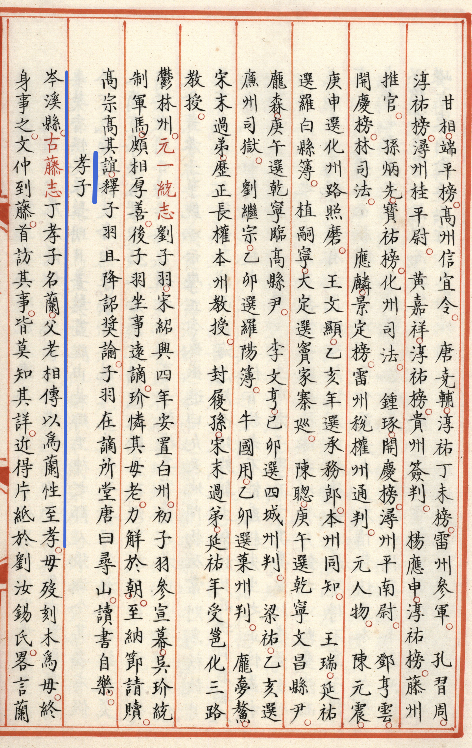 甘相端平榜高州信宜令　唐克輔淳祐丁未榜雷州參軍　孔習周
淳祐榜潯州桂平尉　黃嘉祥淳祐榜貴州簽判　楊應申淳祐榜藤州
推官　孫炳先寶祐榜化州司法　鍾琢開慶榜潯州平南尉　鄧亨雲
開慶榜林司法　應麟景定榜雷州稅權州通判　元人物　陳元震
庚申選化州路照磨　王文顯乙亥年選承務郎本州同知　王瑞延祐
選羅白縣簿　植嗣寧大定選竇家寨廵　陳聰庚午選乾寧文昌縣尹
龐森庚午選乾寧臨高縣尹　李文亨己卯選四城州判　梁祐乙亥選
廉州司獄　劉繼宗乙卯選羅陽簿　牛國用乙卯選藁州判　龐夢鰲
宋末過弟歷正長權本州教授　封履孫宋末過弟延祐年受邕化三路
教授
鬱林州元一統志劉子羽宋紹興四年安置白州初子羽參宣幕吳玠統
制軍馬頗相厚善後子羽坐事遠謫玠憐其母老力解於朝至納節請贖
高宗高其誼釋子羽且降詔奨諭子羽在謫所堂唐曰尋山讀書自樂
孝子
岑溪縣古藤志丁孝子名蘭父老相傳以爲蘭性至孝母歿刻木爲母終
身事之文仲到藤首訪其事皆莫知其詳近得片紙於劉汝錫氏畧言蘭